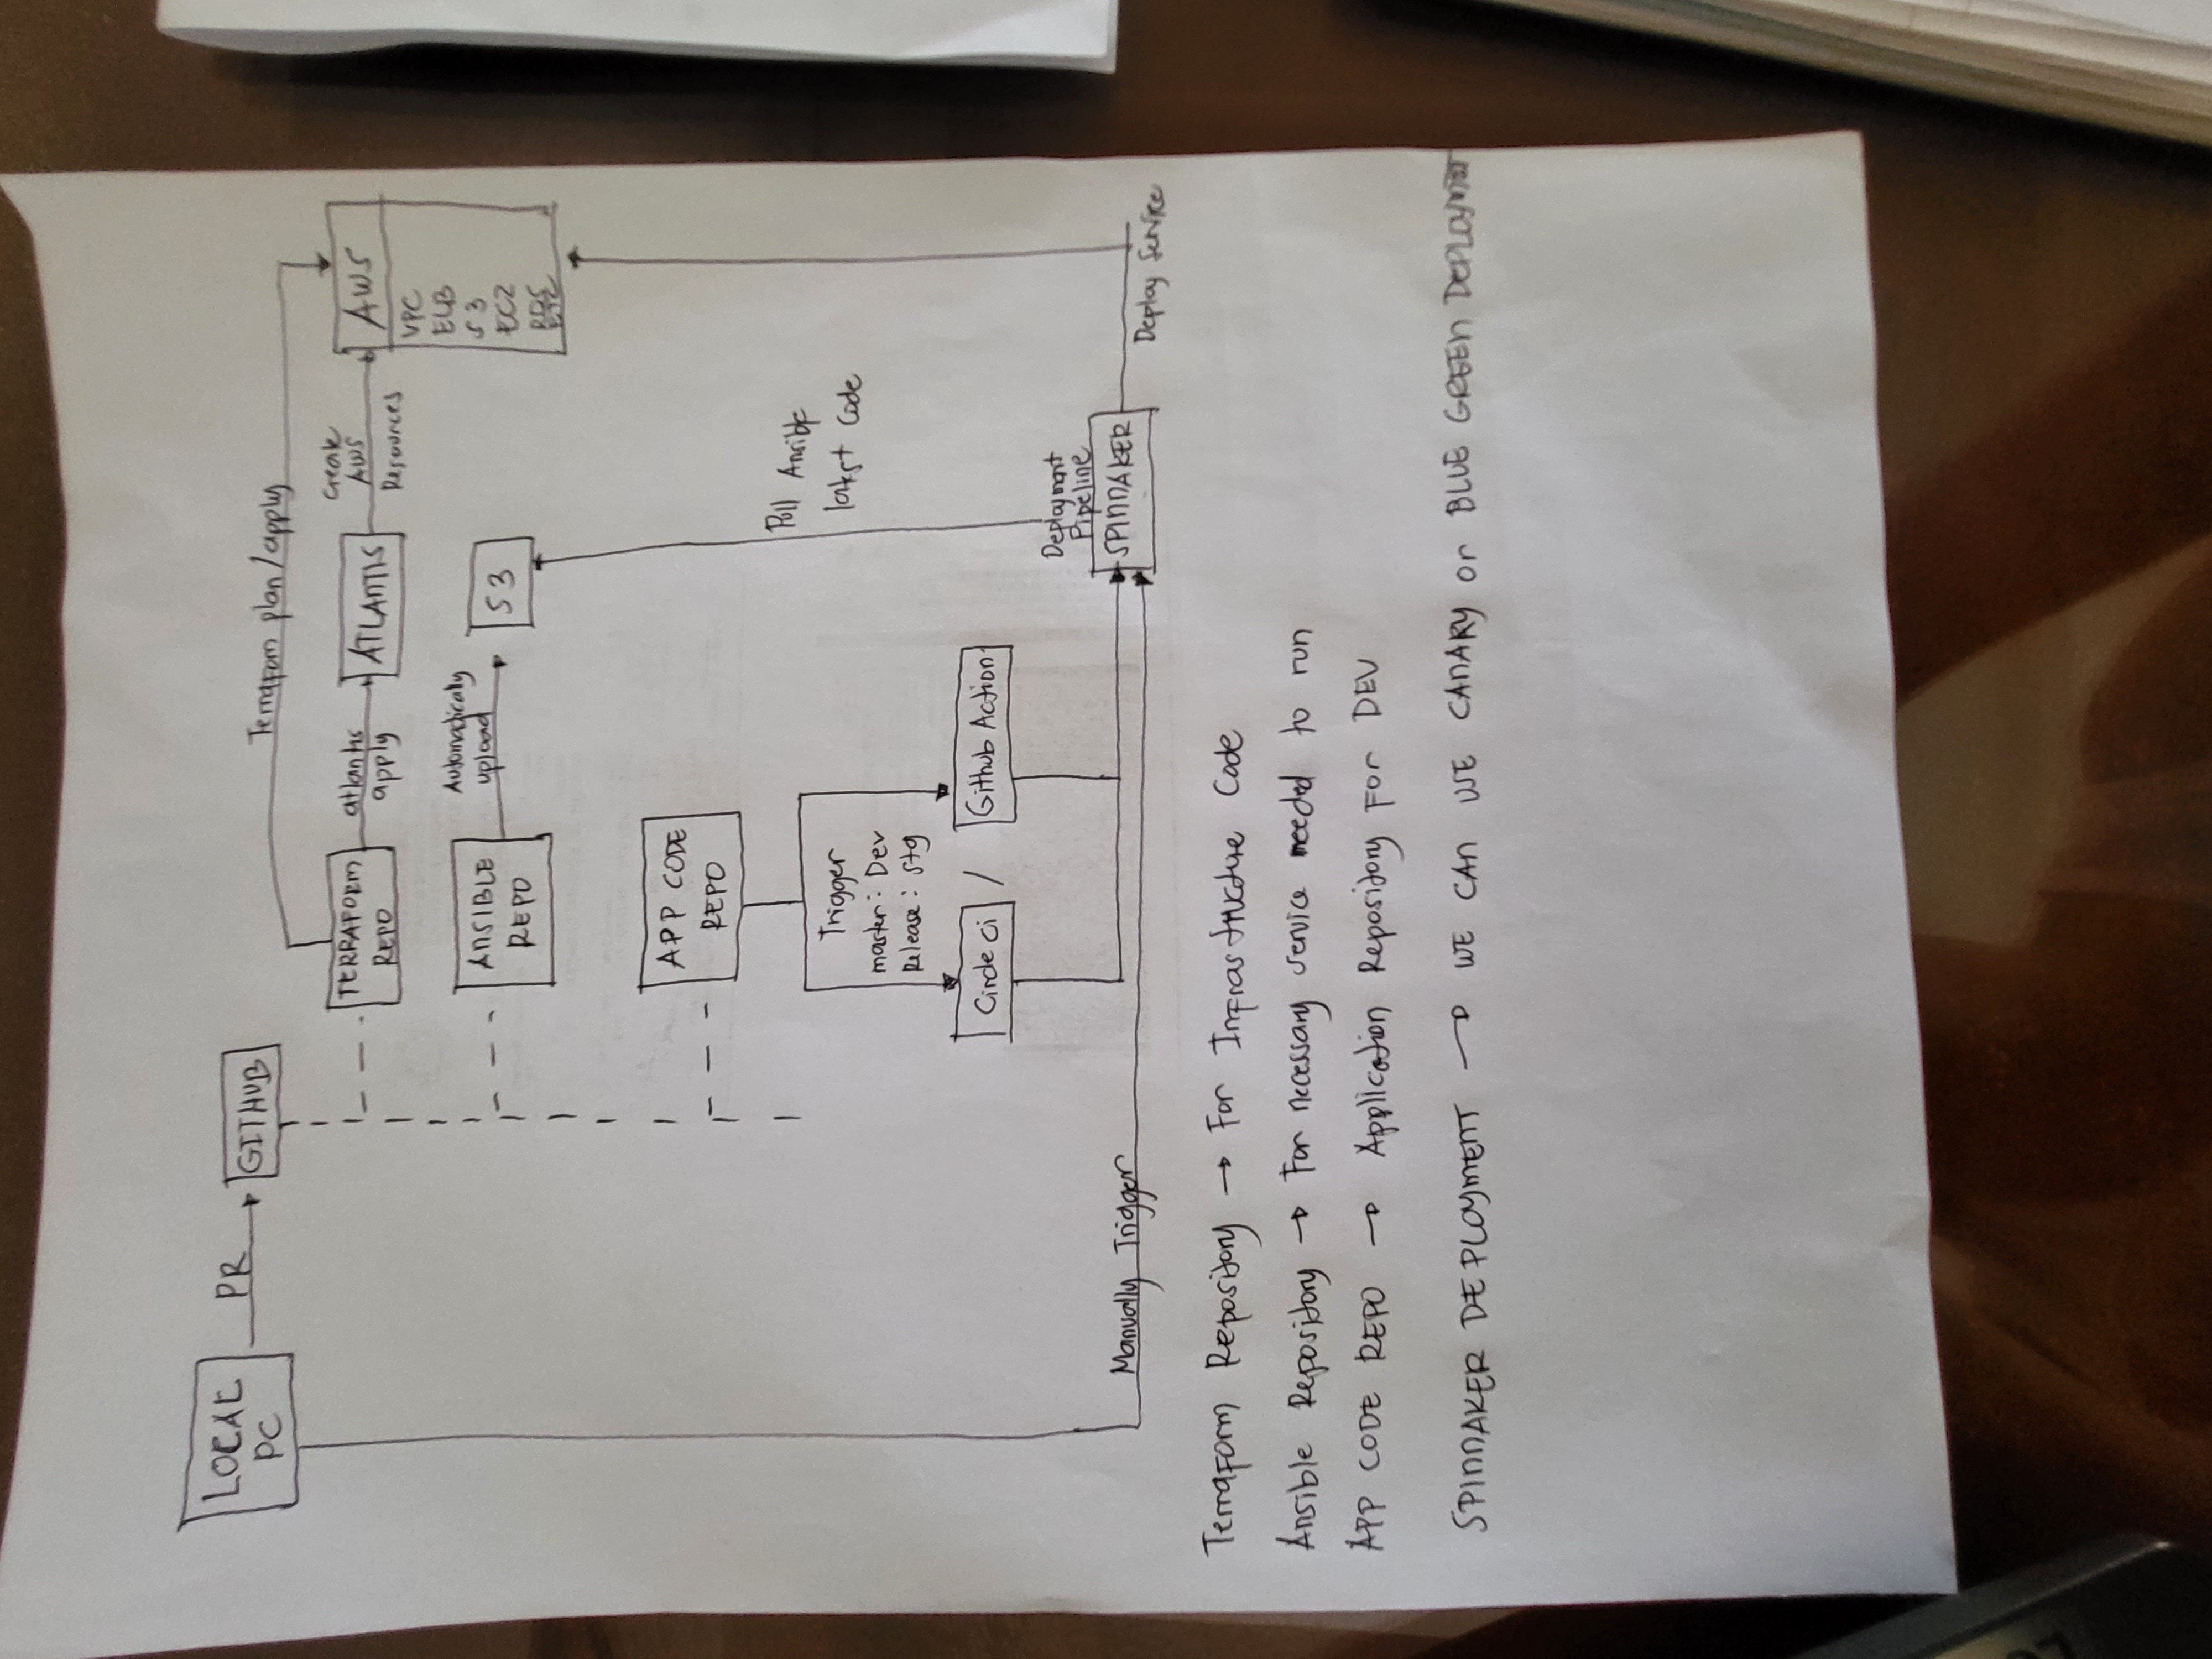 LOCAL
PC
PR
GITHUB
Terraform plan/apply
TERRAFORM
REPO
atlantis
apply
ATLANTIS
Create
AWS
Resources
AWS
VPC
ELB
S3
EC2
RDS
ETC
ANSIBLE
REPO
Automatically
upload
S3
APP CODE
REPO
Trigger
master: Dev
Release: stg
Circle ci / Github Action
Pull Ansible
latest Code
Deployment
Pipeline
SPINNAKER
Manually Trigger
Deploy Service
Terraform Repository → For Infrastructure Code
Ansible Repository → For necessary service needed to run
APP CODE REPO → Application Repository For DEV
SPINNAKER DEPLOYMENT → WE CAN USE CANARY or BLUE GREEN DEPLOYMENT